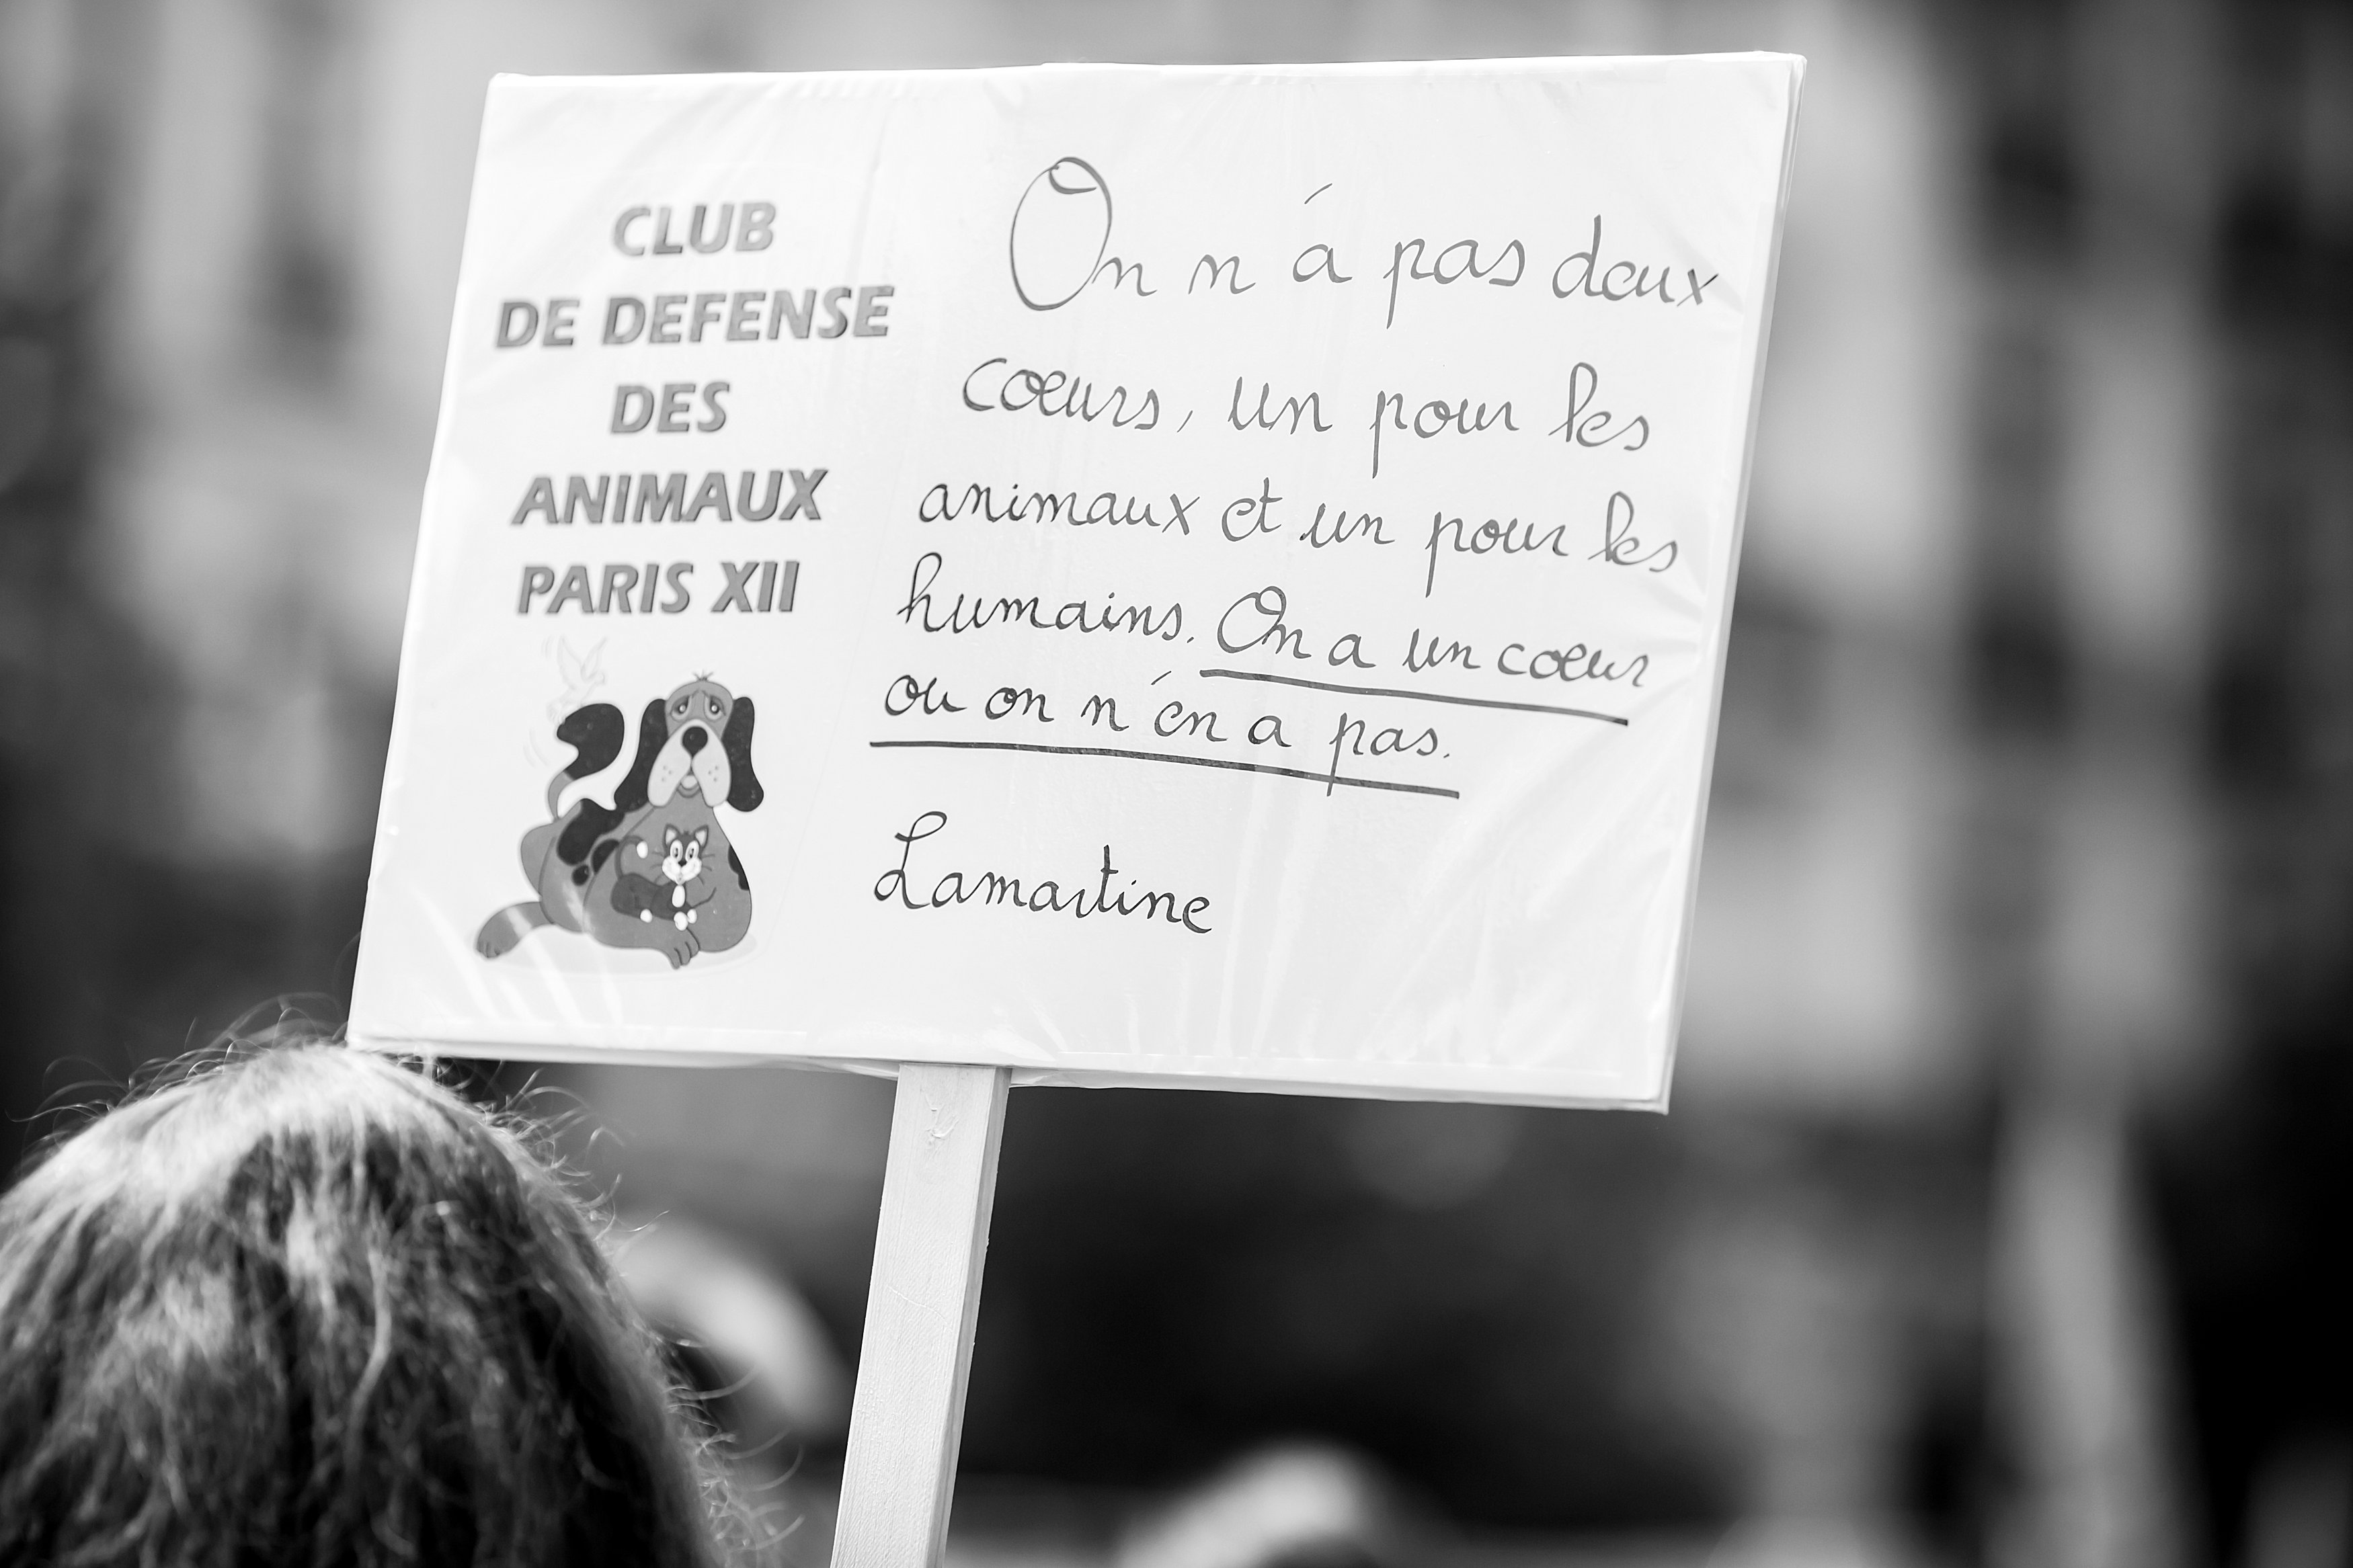 CLUB
DE DEFENSE
DES
ANIMAUX
PARIS XII
On n'a pas deux
cœurs, un pour les
animaux et un pour les
humains. On a un cœur
ou on n'en a pas.
Lamartine